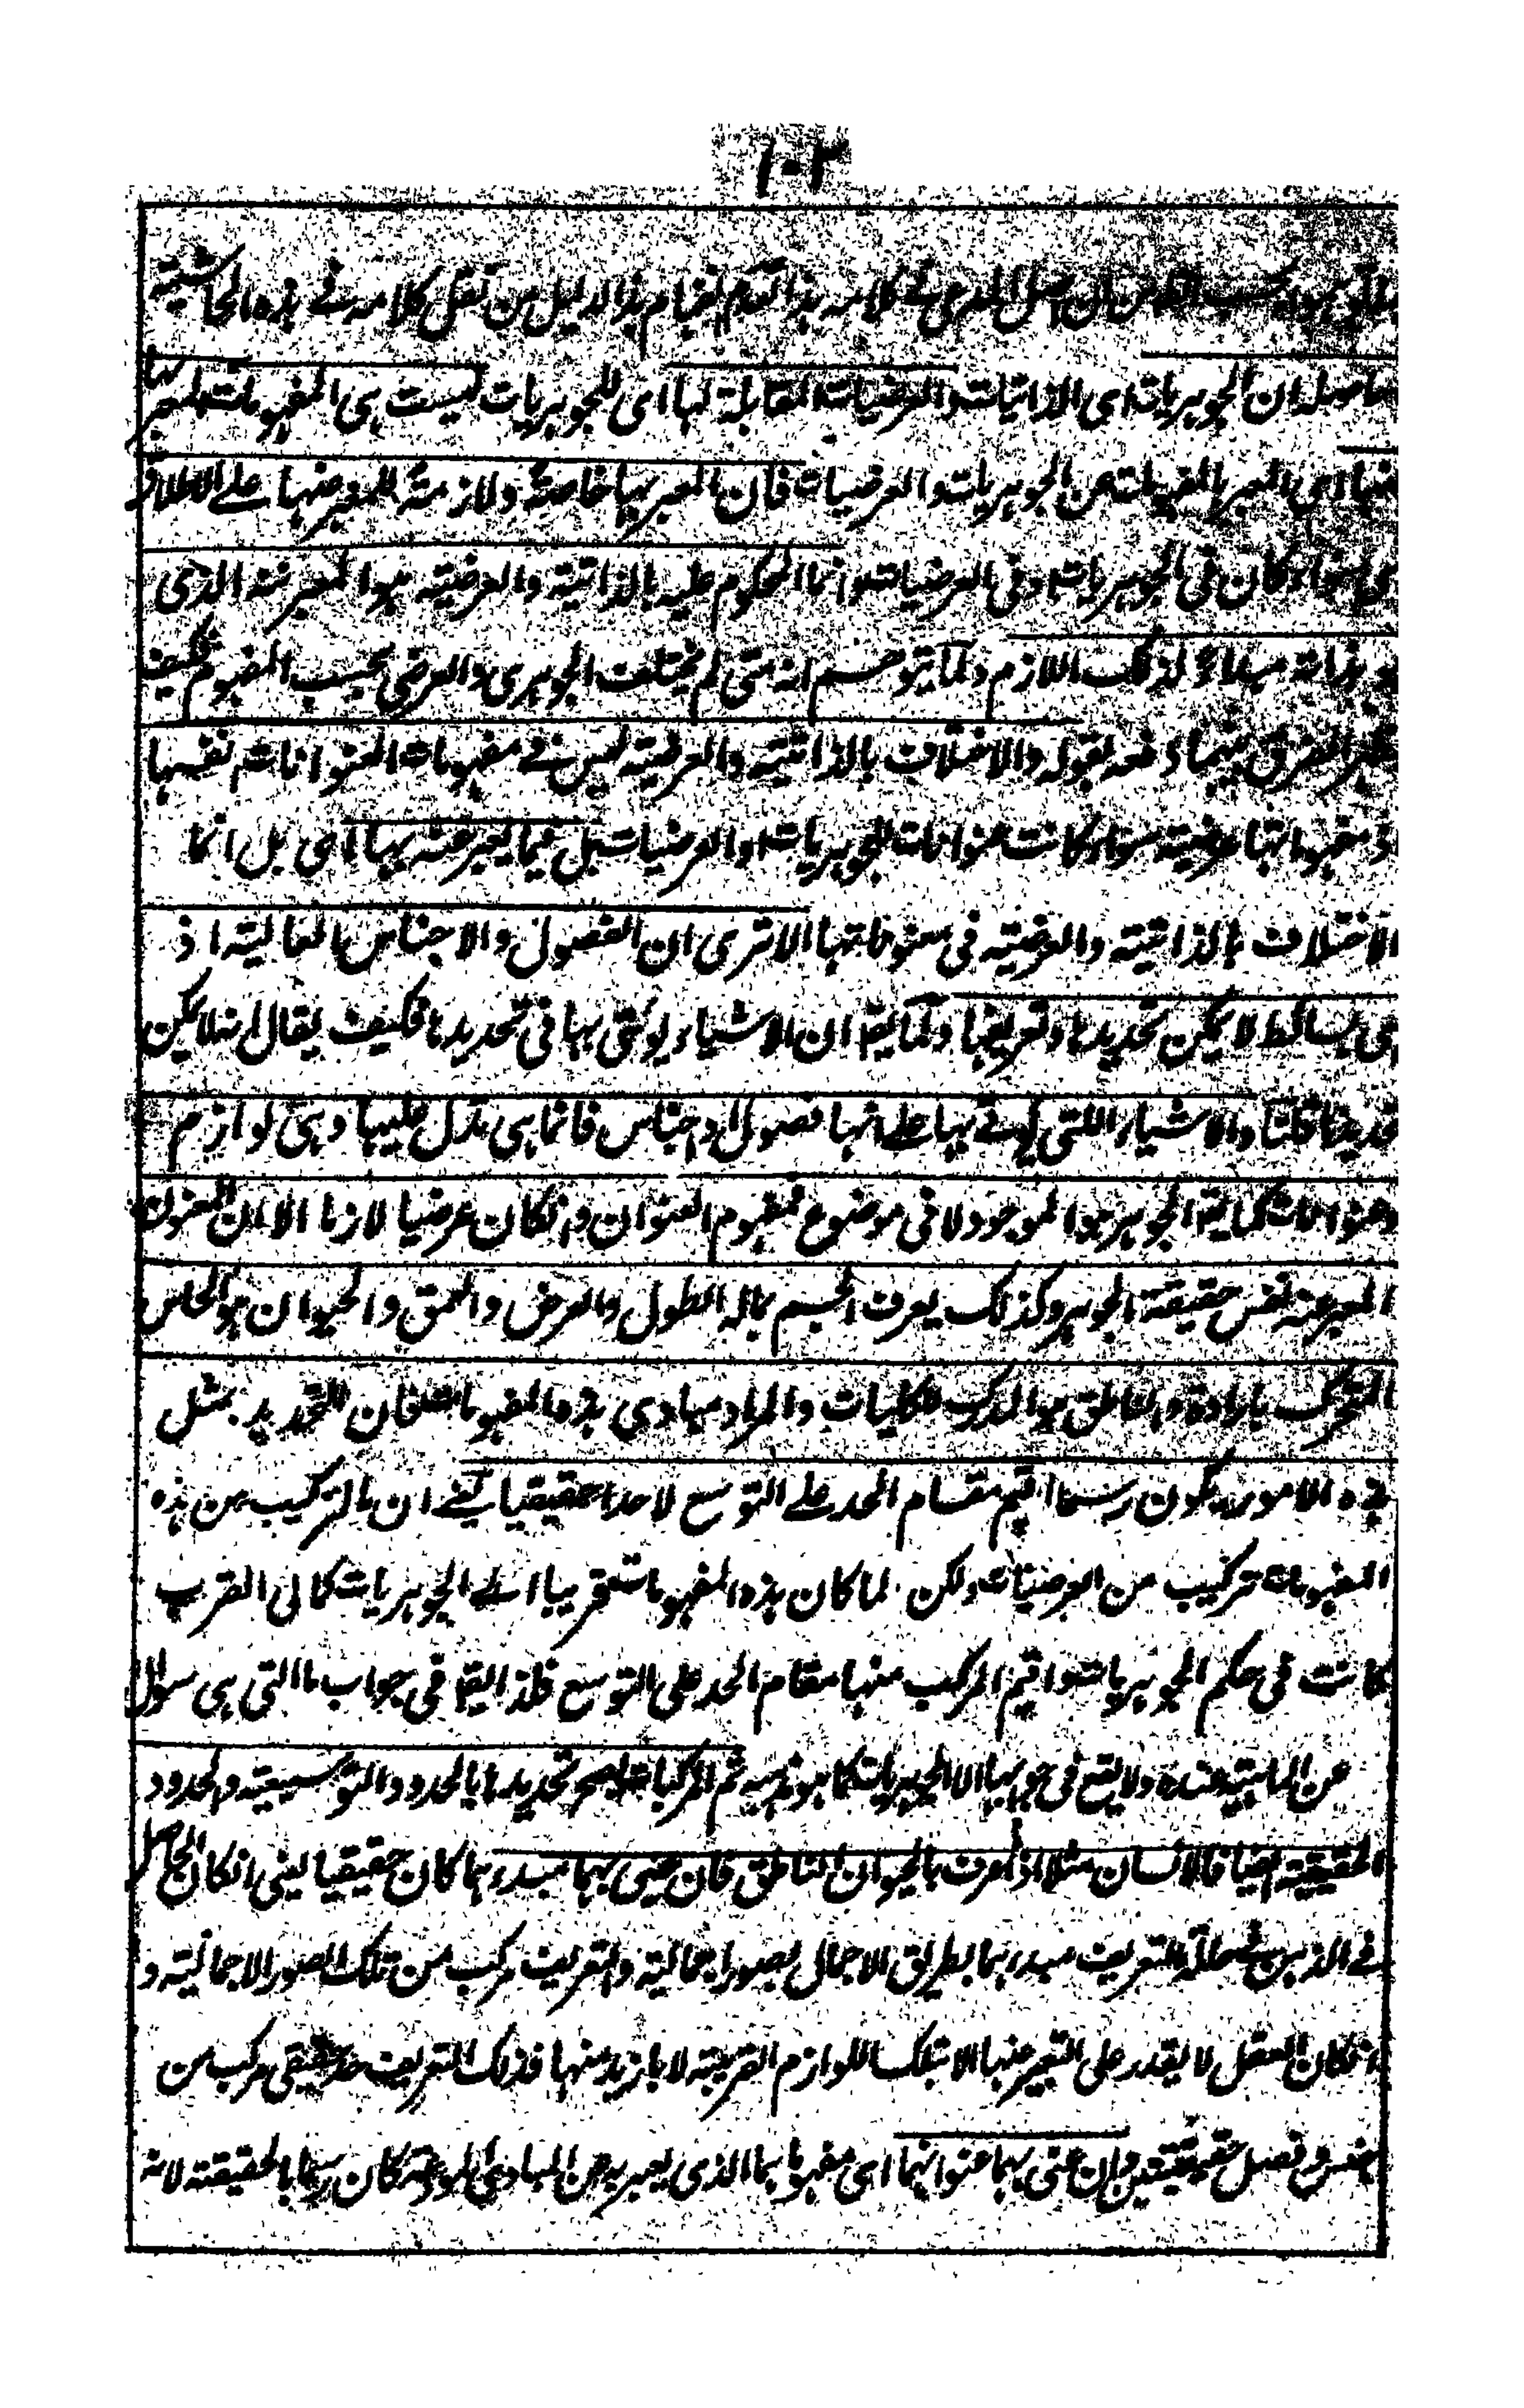 ١٠٢
من ان اصل المدعى فى كلامه هذا تقدم لضام هذا الدليل من نقل كلامه فى هذه الحاشية
حاصله ان الجوهريات اى الذاتيات والعرضيات المقابلة لها اى للجوهريات ليست هى المفهومات المعبر بها
عنها اى المعبر بالمفهومات عن الجوهريات والعرضيات فان المعبر بها خاصة ولازمة للمعبر عنها على الاطلاق
اى سواء كان فى الجوهريات وفى العرضيات وانما المحكوم عليه بالذاتية والعرضية هو المعبر عنه الذى
هو بذاته مبدء لذلك اللازم ولما يتوهم انه متى لم يختلف الجوهرى والعرضى بحسب المفهوم فكيف
يظهر الفرق بينهما دفعه بقوله والاختلاف بالذاتية والعرضية ليس فى مفهومات العنوانات نفسها
اذ مفهوماتها عرضية سواء كانت عنوانات الجوهريات او العرضيات بل فيما يعبر عنه بها اى بل انما
الاختلاف بالذاتية والعرضية فى معنوناتها الا ترى ان الفصول والاجناس العالية اذ
هى بسائط لا يمكن تحديدها وتعريفها ولما يقم ان الاشياء يؤتى بها فى تحديدها فكيف يقال انه لا يمكن
تحديدها قلنا والاشياء اللتى يؤتى بها على انها فصول او اجناس فانما هى تدل عليها وهى لوازم
وعنوانات كما يقم الجوهر هو الموجود لا فى موضوع فمفهوم العنوان وانكان عرضيا لازما الا ان المعنون
المعبر عنه نفس حقيقة الجوهر وكذلك يعرف الجسم بماله الطول والعرض والعمق والحيوان هو الحاس
المتحرك بارادة والناطق هو المدرك للكليات والمراد مبادى هذه المفهومات فان التحديد بمثل
هذه الامور يكون رسما اقيم مقام الحد على التوسع لا حدا حقيقيا يعنى ان بالتركيب من هذه
المفهومات تركيب من العرضيات ولكن لما كان هذه المفهومات قريبا الى الجوهريات كمالى القرب
كانت فى حكم الجوهريات واقيم المركب منها مقام الحد على التوسع فلذا يقع فى جواب ما التى هى سوال
عن الماهية عنده ولا يقع فى جوابها الا الجوهريات كما هو مذهبه ثم المركبات يصح تحديدها بالحدود التوسعية والحدود
الحقيقية ايضا فالانسان مثلا اذا عرف بالحيوان الناطق فان عنى بهما مبدءهما كان حقيقيا يعنى انكان الحاصل
فى الذهن فى حالة التعريف مبدءهما بطريق الاجمال بصور اجمالية والتعريف مركب من تلك الصور الاجمالية و
انكان العقل لا يقدر على التعبير عنها الا بتلك اللوازم القريبة لا بازيد منها فذلك التعريف حد حقيقى مركب من
جنس وفصل حقيقيين وان عنى بهما عنوانهما اى مفهوماهما الذى يعبر به عن المبادى كان رسما بالحقيقة لانه